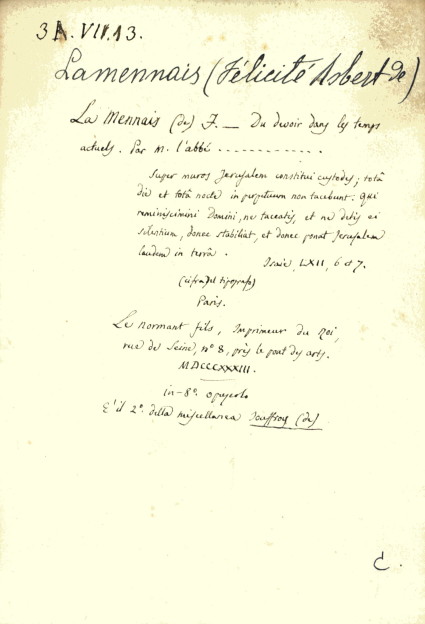 3A.VII.13.
Lamennais (Félicité Robert de)
La Mennais (de) F. — Du devoir dans les temps
actuels. Par M. l'abbé - - - - - - - - - - - -.
Super muros Jerusalem constitui custodes; totâ
die et totâ nocte in perpetuum non tacebunt. Qui
reminiscimini Domini, ne taceatis, et ne detis ei
silentium, donec stabiliat, et donec ponat Jerusalem
laudem in terrâ.
Isaie, LXII, 6 et 7.
(cifra del tipografo)
Paris.
Le Normant fils, Imprimeur du Roi,
rue de Seine, n° 8, près le pont des arts.
MDCCCXXXIII.
in-8°. opuscolo
E' il 2°. della miscellanea Jouffroy (de)
C.